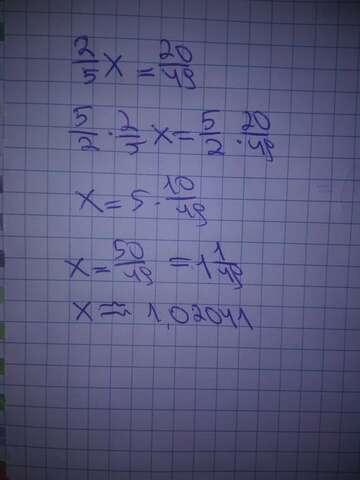 2/5 x = 20/49
5/2 · 2/5 x = 5/2 · 20/49
x = 5 · 10/49
x = 50/49 = 1 1/49
x ≈ 1,02041